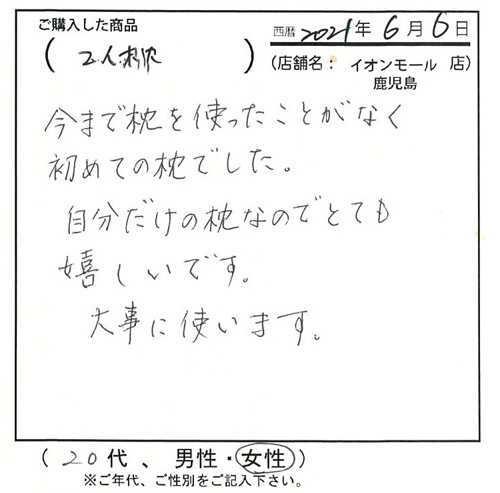 ご購入した商品
西暦 2021年 6月 6日
(店舗名: イオンモール 店)
鹿児島
今まで枕を使ったことがなく
初めての枕でした。
自分だけの枕なのでとても
嬉しいです。
大事に使います。
(20代、男性・女性)
※ご年代、ご性別をご記入下さい。